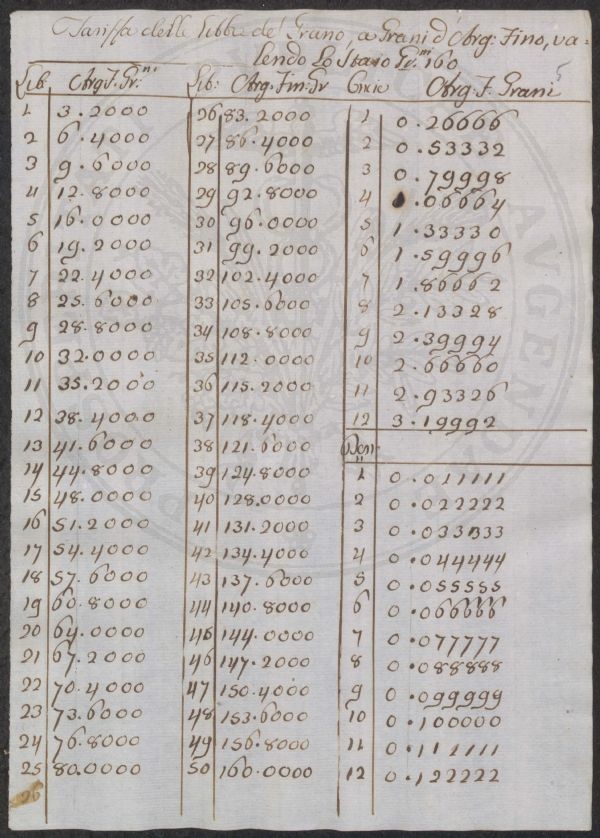 Tariffa delle Libbre de' Grano, a Grani d'Arg: Fino, va=
lendo Lo Staio Gr.ni 160
5
Lib. Arg. F. Gr.ni
1 3.2000
2 6.4000
3 9.6000
4 12.8000
5 16.0000
6 19.2000
7 22.4000
8 25.6000
9 28.8000
10 32.0000
11 35.2000
12 38.4000
13 41.6000
14 44.8000
15 48.0000
16 51.2000
17 54.4000
18 57.6000
19 60.8000
20 64.0000
21 67.2000
22 70.4000
23 73.6000
24 76.8000
25 80.0000
26
Lib: Arg. Fin: Gr
26 83.2000
27 86.4000
28 89.6000
29 92.8000
30 96.0000
31 99.2000
32 102.4000
33 105.6000
34 108.8000
35 112.0000
36 115.2000
37 118.4000
38 121.6000
39 124.8000
40 128.0000
41 131.2000
42 134.4000
43 137.6000
44 140.8000
45 144.0000
46 147.2000
47 150.4000
48 153.6000
49 156.8000
50 160.0000
Oncie Arg: F. Grani
1 0.26666
2 0.53332
3 0.79998
4 1.06664
5 1.33330
6 1.59996
7 1.86662
8 2.13328
9 2.39994
10 2.66660
11 2.93326
12 3.19992
Den:
1 0.011111
2 0.022222
3 0.033333
4 0.044444
5 0.055555
6 0.066666
7 0.077777
8 0.088888
9 0.099999
10 0.100000
11 0.111111
12 0.122222